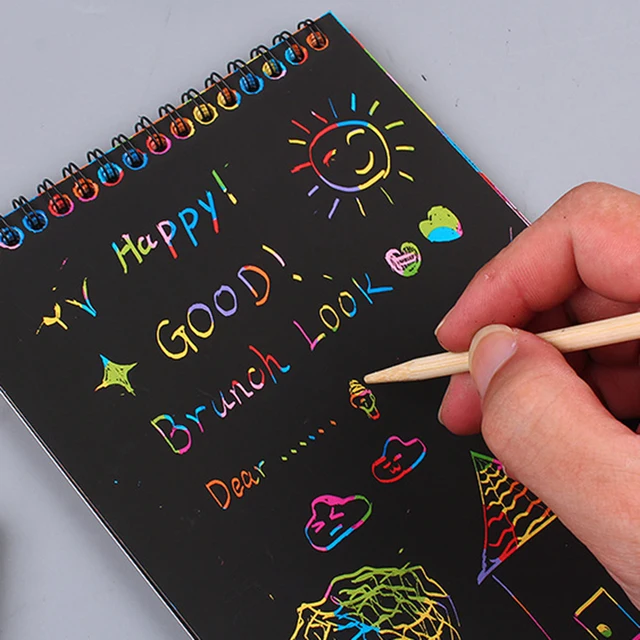 Happy!
GOOD!
Brunch Look
Dear ........